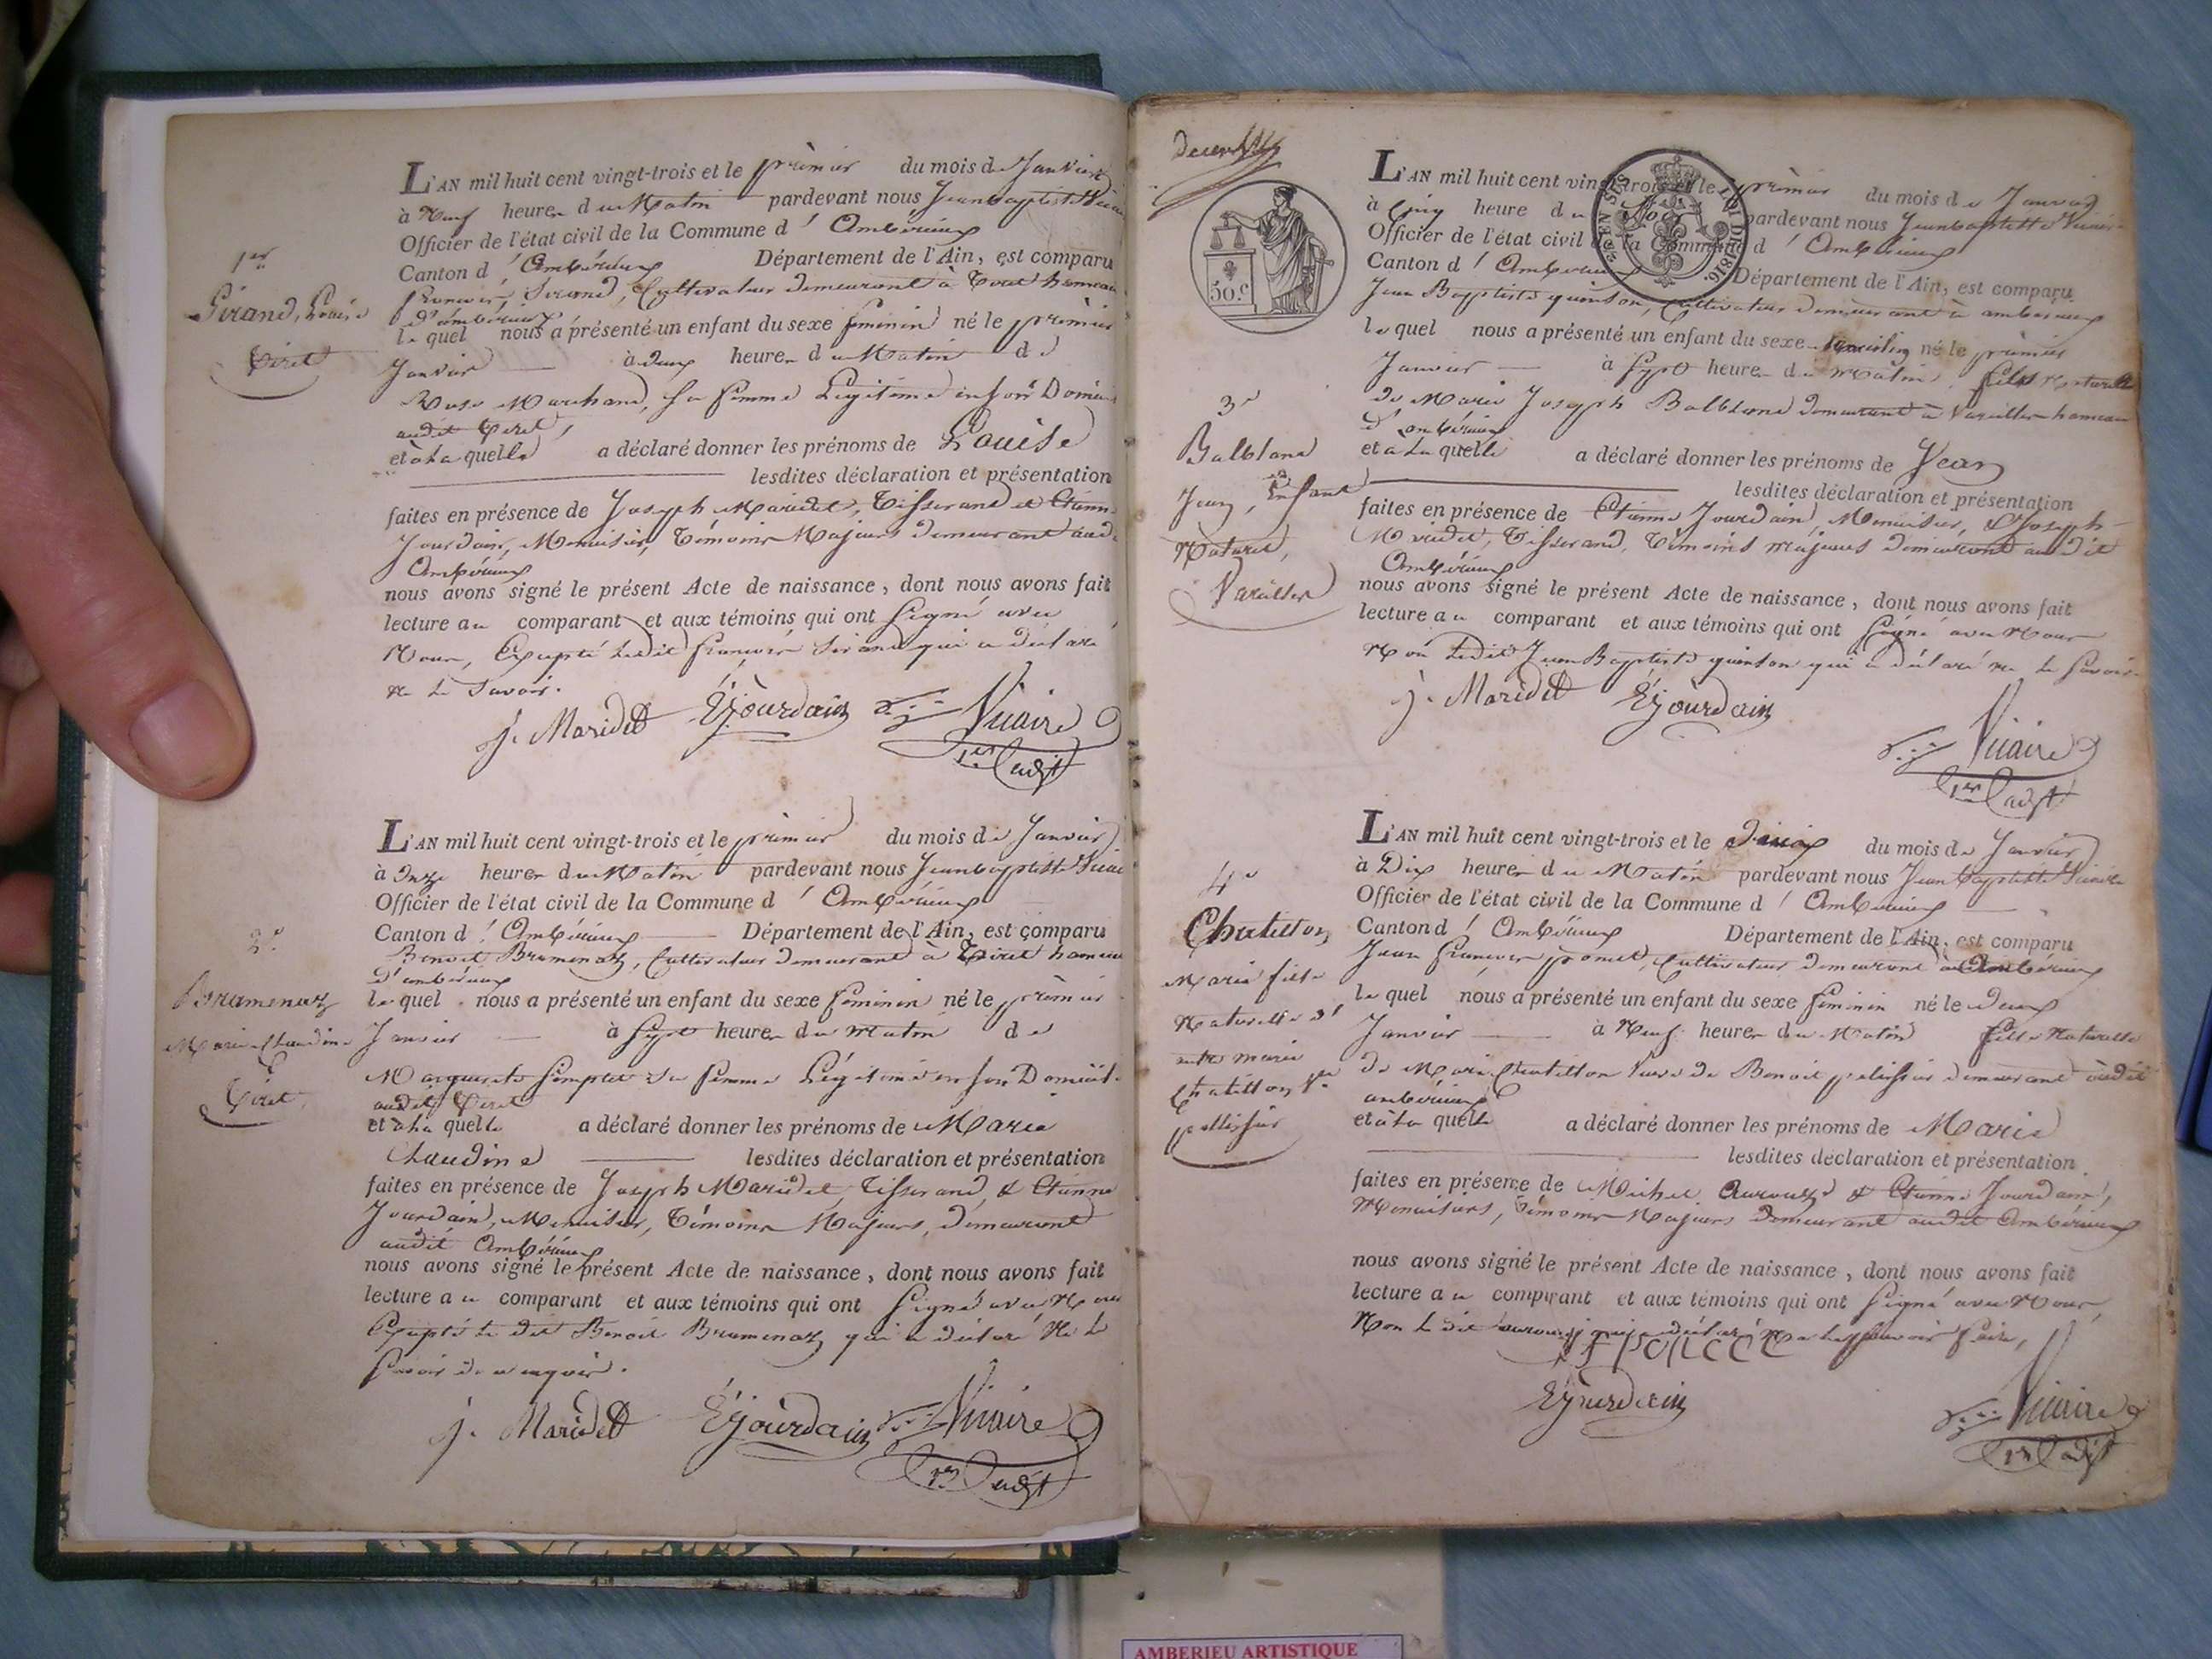 1er
Sirand, Louise
Tiret
L'AN mil huit cent vingt-trois et le premier du mois de Janvier
à Neuf heures du Matin pardevant nous Jean baptiste Vicaire
Officier de l'état civil de la Commune d'Ambérieux
Canton d'Ambérieux Département de l'Ain, est comparu
François Sirand, Cultivateur demeurant à Tiret hameau
d'ambérieux
le quel nous a présenté un enfant du sexe feminin né le premier
Janvier à deux heures du Matin de
Rose Marchand, sa femme Légitime en son Domicile
audit Tiret,
et à la quelle a déclaré donner les prénoms de Louise
lesdites déclaration et présentation
faites en présence de Joseph Maridet, Tisserand et Etienne
Jourdain, Menuisier, Témoins Majeurs demeurant audit
Ambérieux
nous avons signé le présent Acte de naissance, dont nous avons fait
lecture au comparant et aux témoins qui ont signé avec
Nous, Excepté ledit François Sirand qui a déclaré
ne le savoir.
j. Maridet Ejourdain Vicaire
1er adjt
2e
Bramenaz
Marie Claudine
Tiret
L'AN mil huit cent vingt-trois et le premier du mois de Janvier
à onze heures du Matin pardevant nous Jean baptiste Vicaire
Officier de l'état civil de la Commune d'Ambérieux
Canton d'Ambérieux Département de l'Ain, est comparu
Benoit Bramenaz, Cultivateur demeurant à Tiret hameau
d'ambérieux
le quel nous a présenté un enfant du sexe feminin né le premier
Janvier à sept heures du matin de
Marguerite sa femme Légitime en son Domicile
audit Tiret
et à la quelle a déclaré donner les prénoms de Marie
Claudine lesdites déclaration et présentation
faites en présence de Joseph Maridet, Tisserand, & Etienne
Jourdain, Menuisier, Témoins Majeurs, demeurant
audit Ambérieux
nous avons signé le présent Acte de naissance, dont nous avons fait
lecture au comparant et aux témoins qui ont signé avec Nous
Excepté le dit Benoit Bramenaz qui a déclaré Ne le
savoir de ce requis.
j. Maridet Ejourdain Vicaire
1er adjt
50.c
3e
Balbland
Jean, Enfant
Naturel,
Vareilles
L'AN mil huit cent vingt-trois et le premier du mois de Janvier
à Cinq heure du Soir pardevant nous Jean baptiste Vicaire
Officier de l'état civil de la Commune d'Ambérieux
Canton d'Ambérieux Département de l'Ain, est comparu
Jean Baptiste quinson, Cultivateur demeurant à ambérieux
le quel nous a présenté un enfant du sexe masculin né le premier
Janvier à sept heures du matin, fils Naturel
de Marie Joseph Balbland demeurant à Vareilles hameau
d'ambérieux
et à la quelle a déclaré donner les prénoms de Jean
lesdites déclaration et présentation
faites en présence de Etienne Jourdain, Menuisier, & Joseph
Maridet, Tisserand, Témoins majeurs demeurant audit
Ambérieux
nous avons signé le présent Acte de naissance, dont nous avons fait
lecture au comparant et aux témoins qui ont signé avec Nous
Non ledit Jean Baptiste quinson qui a déclaré ne le savoir.
j. Maridet Ejourdain
Vicaire
1er adjt
4e
Chatillon
Marie fille
Naturelle d'
autre marie
Chatillon Ve
pellissier
L'AN mil huit cent vingt-trois et le Deux du mois de Janvier
à Dix heures du Matin pardevant nous Jean baptiste Vicaire
Officier de l'état civil de la Commune d'Ambérieux
Canton d'Ambérieux Département de l'Ain, est comparu
Jean François poncet, Cultivateur demeurant à Ambérieux
le quel nous a présenté un enfant du sexe feminin né le deux
Janvier à Neuf heures du Matin fille Naturelle
de Marie Chatillon Veuve de Benoit pelissier demeurant audit
ambérieux
et à la quelle a déclaré donner les prénoms de Marie
lesdites déclaration et présentation
faites en présence de Michel & Etienne Jourdain,
Menuisiers, Témoins Majeurs demeurant audit Ambérieux
nous avons signé le présent Acte de naissance, dont nous avons fait
lecture au comparant et aux témoins qui ont signé avec Nous,
Non le dit qui a déclaré Ne le savoir faire,
Ejourdain
Vicaire
1er adjt
AMBERIEU ARTISTIQUE